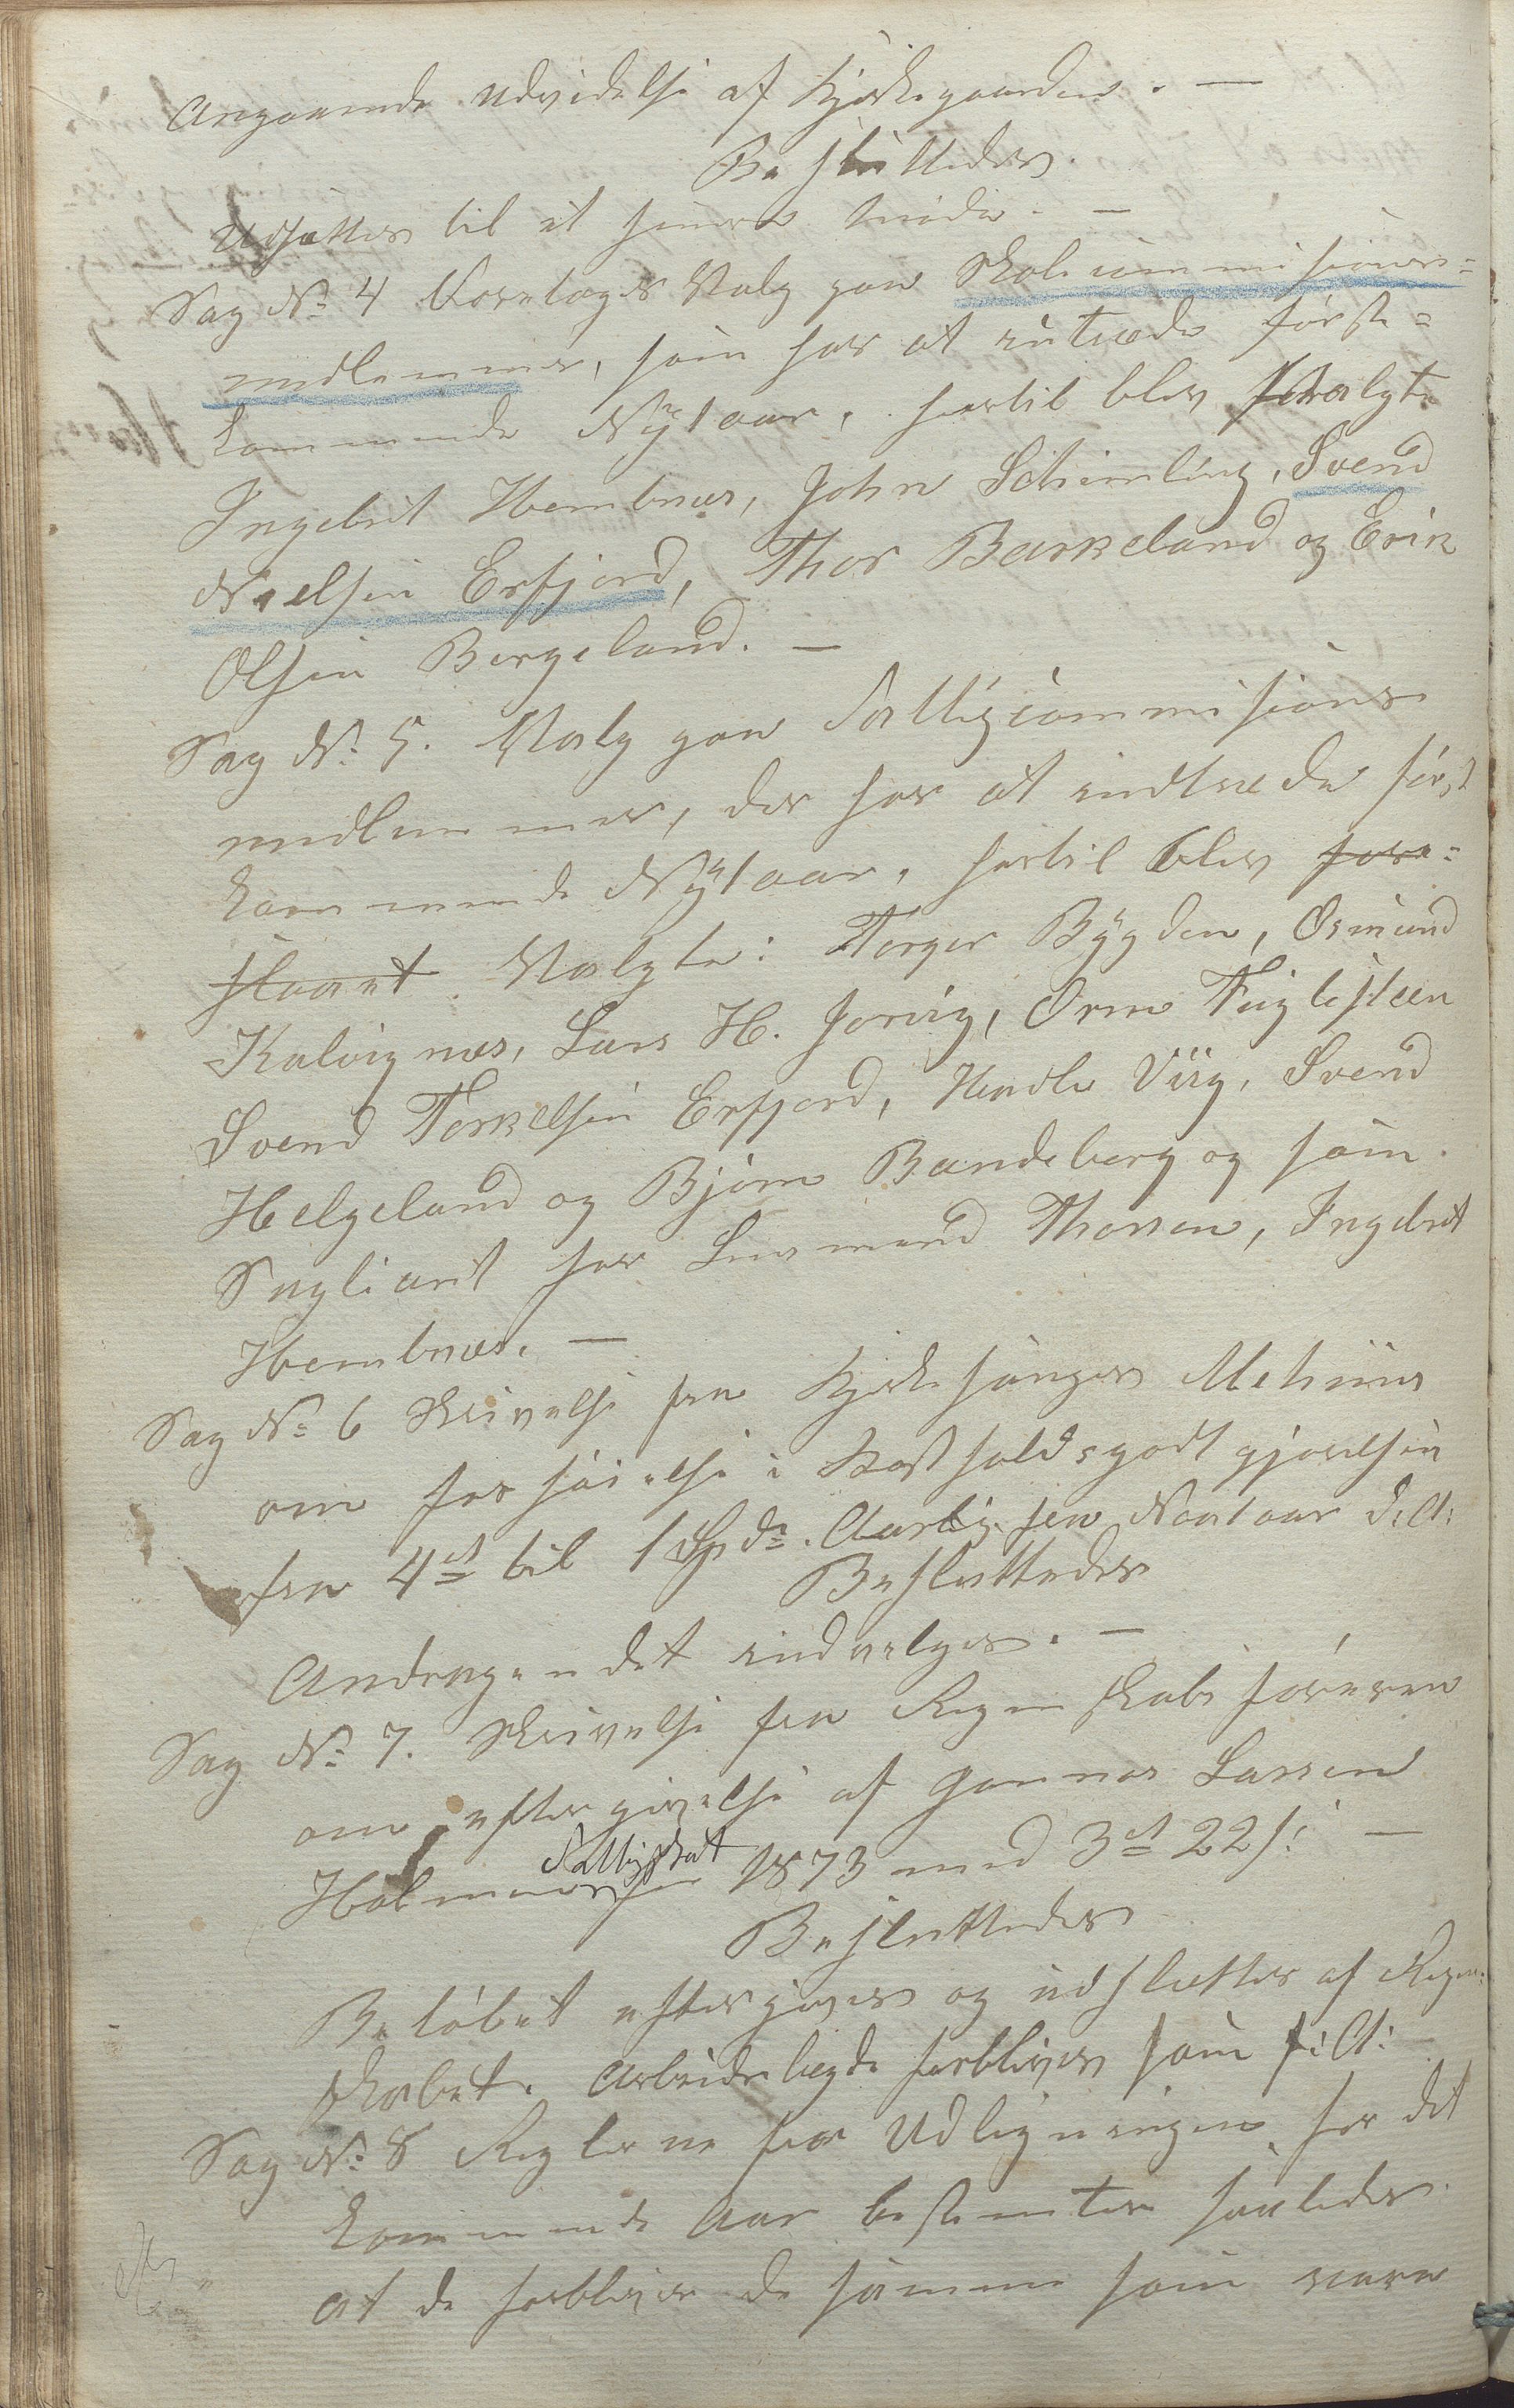 Angaaende Udvidelse af Kjirkegaarden. —
Besluttedes.
Udsættes til et senere Møde. —
Sag № 4 Foretoges Valg paa Skolecommisions=
medlemmer, som har at intræde første=
kommende Nÿtaar, hertil blev valgte
Ingebret Hembnes, John Schimling, Svend
Nielsen Erfjord, Thor Barkeland og Erik
Olsen Bergeland. —
Sag № 5. Valg paa Fattigcommisions
medlemmer, der har at indtræde først
kommende Nÿtaar, hertil blev fore=
slaaet Valgte: Torger Bÿgden, Osmund
Kalvignes, Lars H. Jorvig, Orm Fuglesteen
Svend Torkelsen Erfjord, Hendle Viig, Svend
Helgeland og Bjørn Bandeberg og som
Supliant for Lensmand Thorsen, Ingebret
Hembnes. —
Sag № 6 Skrivelse fra Kjirkesanger Mehuus
om forhøielse i Kostholdsgodtgjørelsen
fra 4 ort til 1 Spd. Aarlig fra Nÿtaar d.A:
Besluttedes
Andragendet indvelges. —
Sag № 7. Skrivelse fra Regnskabsføreren
om eftergivelse af Gunnar Larsen
Holmen Fattigskat for 1873 med 3 ort 22 s: —
Besluttedes
Beløbet eftergives og udslettes af Regn=
skabet. Arbeidslægde forbliver som f: A:
Sag № 8 Reglerne for Udligningen for det
kommende Aar bestemtes saaledes
at de forbliver de samme som vare